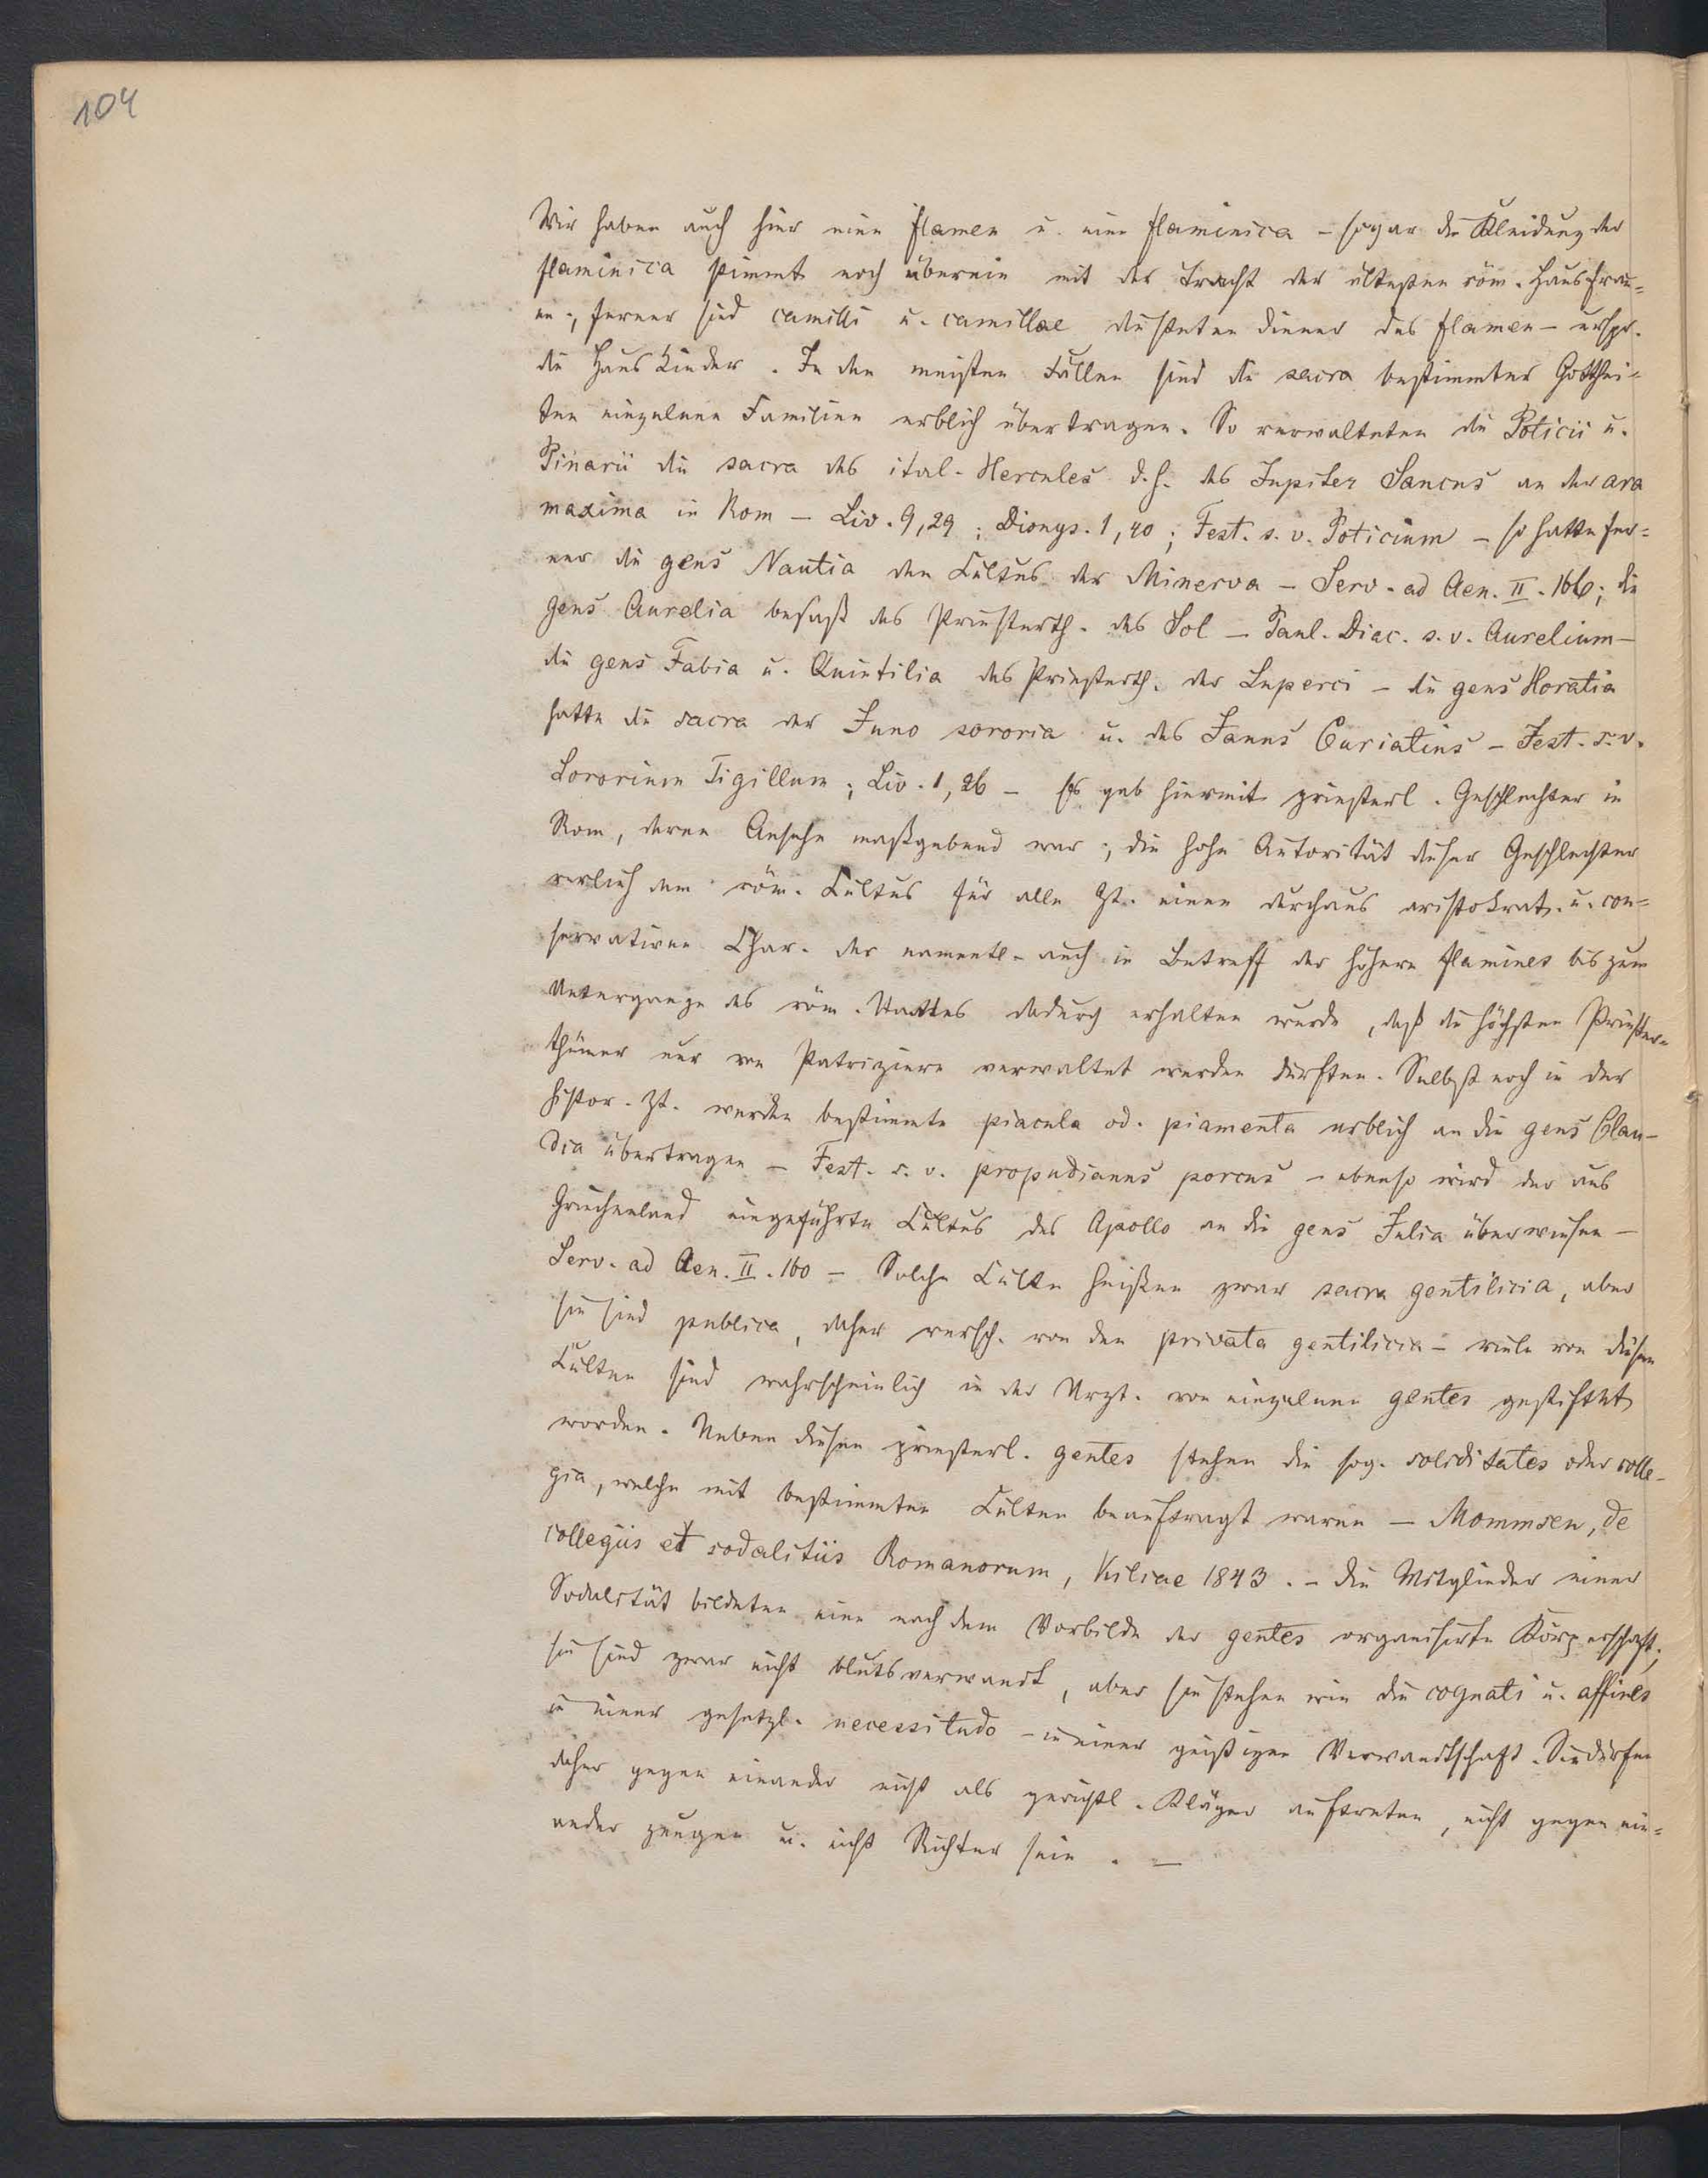 104
Wir haben auch hier einen flamen u. eine flaminica – sogar die Kleidung der
flaminica stimmt noch überein mit der Tracht der ältesten röm. Hausfrau=
en; ferner sind camilli u. camillae die steten Diener des flamen – urspr.
die Hauskinder. In den meisten Fällen sind die sacra bestimmter Gotthei=
ten einzelnen Familien erblich übertragen. So verwalteten die Poticii u.
Pinarii die sacra des ital. Hercules d.h. des Jupiter Sancus an der ara
maxima in Rom – Liv. 9,29; Dionys. 1,40; Fest. s. v. Poticium – so hatte fer=
ner die gens Nautia den Cultus der Minerva – Serv. ad Aen. II. 166; die
gens Aurelia besaß das Priesterth. des Sol – Paul. Diac. s. v. Aurelium –
die gens Fabia u. Quintilia das Priesterth. der Luperci – die gens Horatia
hatte die sacra der Juno sororia u. des Janus Curiatius – Fest. s. v.
Sororium Tigillum; Liv. 1,26 – Es gab hiermit priesterl. Geschlechter in
Rom, deren Ansehn maßgebend war; die hohe Autorität dieser Geschlechter
verlieh dem röm. Cultus für alle Zt. einen durchaus aristokrat. u. con=
servativen Char. der namentl. auch in Betreff der höhern flamines bis zum
Untergange des röm. Staates dadurch erhalten wurde, daß die höchsten Priester=
thümer nur von Patriziern verwaltet werden durften. Selbst noch in der
histor. Zt. werden bestimmte piacula od. piamenta erblich an die gens Clau-
dia übertragen – Fest. s. v. propudianus porcus – ebenso wird der aus
Griechenland eingeführte Cultus des Apollo an die gens Julia überwiesen –
Serv. ad Aen. II. 160 – Solche Culte heißen zwar sacra gentilicia, aber
sie sind publica, daher versch. von den privata gentilicia – viele von diesen
Culten sind wahrscheinlich in der Urzt. von einzelnen gentes gestiftet
worden. Neben diesen priesterl. gentes stehen die sog. soliditates oder colle-
gia, welche mit bestimmten Culten beauftragt waren – Mommsen, de
collegiis et sodalitiis Romanorum, Kiliae 1843. – Die Mitglieder einer
Sodalität bildeten eine nach dem Vorbilde der gentes organisirte Körperschaft;
sie sind zwar nicht blutsverwandt, aber sie stehen wie die cognati u. affines
in einer gesetzl. necessitudo – in einer geistigen Verwandtschaft. Sie dürfen
daher gegen einander nicht als gerichtl. Kläger auftreten, nicht gegen ein=
ander zeugen u. nicht Richter sein. –